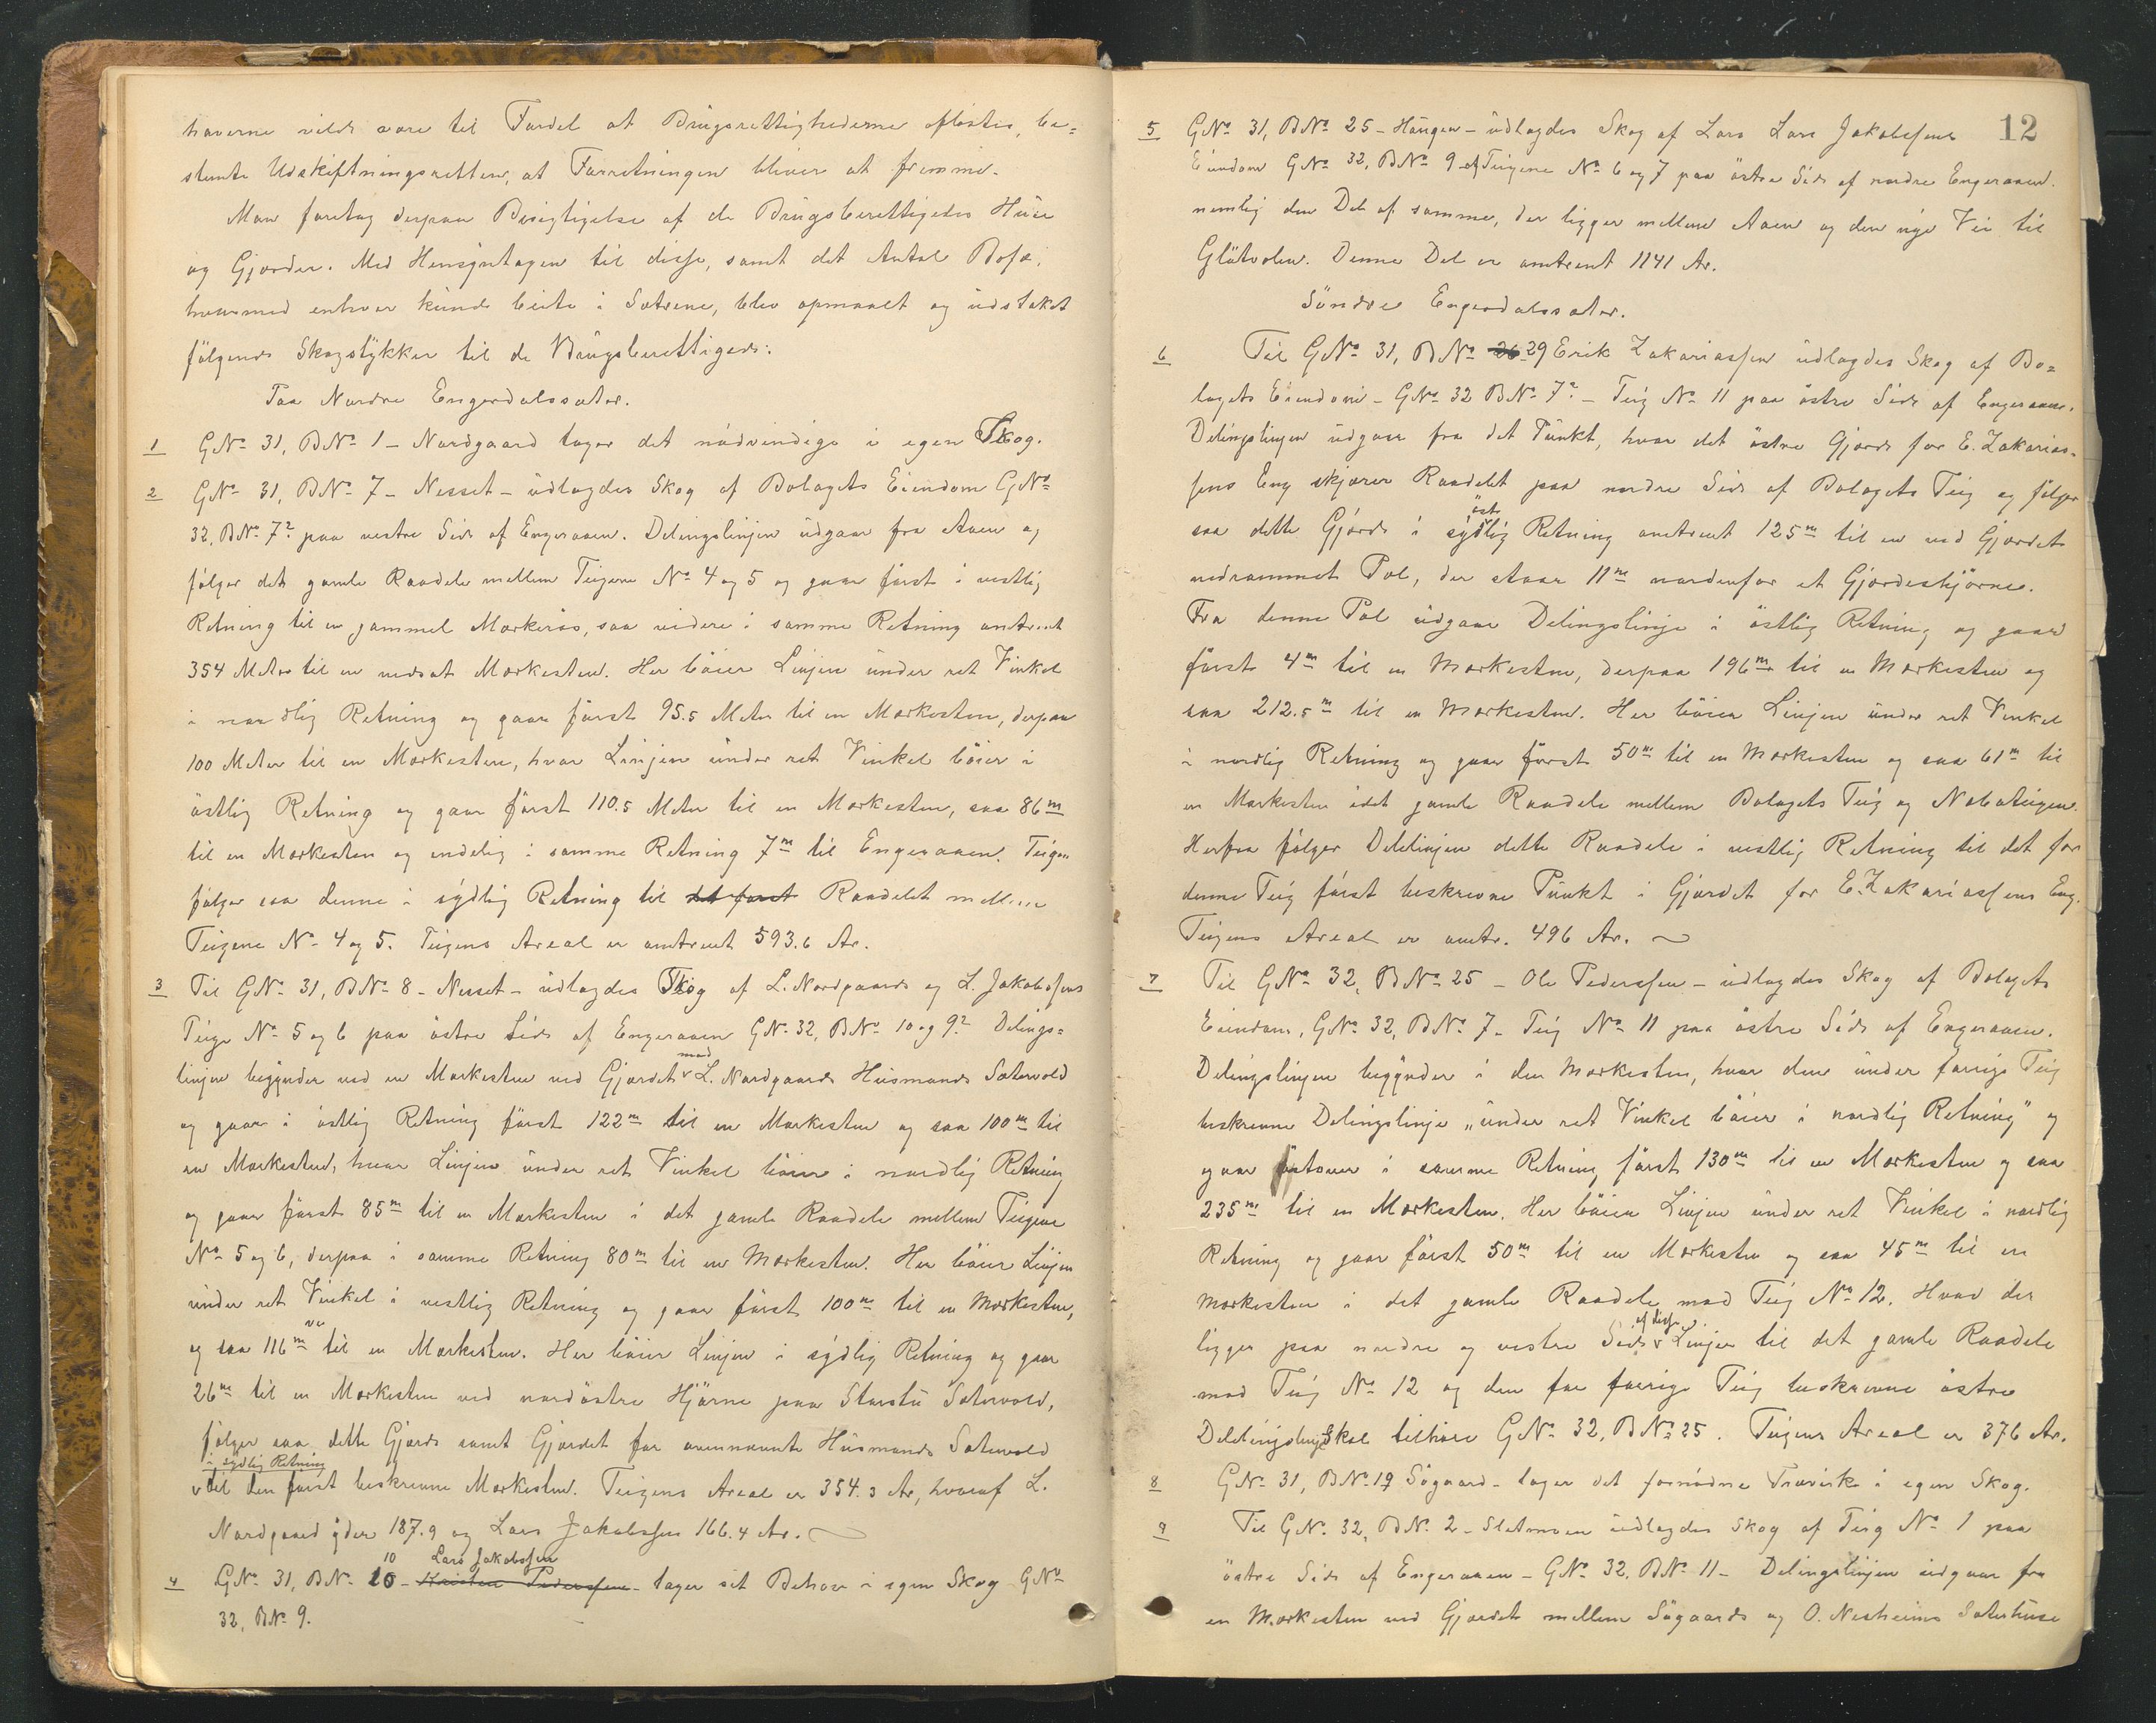 haverne vilde være til Fordel at Brugsrettighederne afløstes, be=
stemte Udskiftningsretten, at Forretningen bliver at fremme.
Man foretog derpaa Besigtigelse af de Brugsberettigedes Huse
og Gjærder. Med Hensyntagen til disse, samt det Antal Bofæ,
hvormed enhver kunde beite i Sætrene, blev opmaalt og udstaket
følgende Skogstykker til de Brugsberettigede:
Paa Nordre Engerdalssæter.
1 GNo 31, BNo 1 - Nordgaard tager det nødvendige i egen Skog.
2 GNo 31, BNo 7 - Nesset - udlagdes Skog af Bolagets Eiendom GNo
32, BNo 7? paa vestre Side af Engeraaen. Delingslinjen udgaar fra Aaen og
følger det gamle Raadele mellem Teigene No 4 og 5 og gaar først i vestlig
Retning til en gammel Markerøs, saa videre i samme Retning omtrent
354 Meter til en nedsat Markesten. Her bøier Linjen under ret Vinkel
i nordlig Retning og gaar først 95.5 Meter til en Markesten, derpaa
100 Meter til en Markesten, hvor Linjen under ret Vinkel bøier i
østlig Retning og gaar først 110.5 Meter til en Markesten, saa 86m
til en Markesten og endelig i samme Retning 7m til Engeraaen. Teigen
følger saa denne i sydlig Retning til det først Raadelet mellem
Teigene No 4 og 5. Teigens Areal er omtrent 593.6 Ar.
3 Til GNo 31, BNo 8 - Nesset - udlagdes Skog af L. Nordgaards og L. Jakobsens
Teige No 5 og 6 paa østre Side af Engeraaen GNo 32, BNo 10 og 9? Delings=
linjen begynder ved en Markesten ved Gjærdet mod L. Nordgaards Husmands Sætervold
og gaar i østlig Retning først 122m til en Markesten og saa 100m til
en Markesten, hvor Linjen under ret Vinkel bøier i nordlig Retning
og gaar først 85m til en Markesten i det gamle Raadele mellem Teigene
No 5 og 6, derpaa i samme Retning 80m til en Markesten. Her bøier Linjen
under ret Vinkel i vestlig Retning og gaar først 100m til en Markesten,
og saa 116m til en Markesten. Her bøier Linjen i sydlig Retning og gaar
26m til en Markesten ved nordøstre Hjørne paa Storstu Sætervold,
følger saa dette Gjærde samt Gjærdet for ovennævnte Husmands Sætervold
i sydlig Retning
til den først beskrevne Markesten. Teigens Areal er 354.3 Ar, hvoraf L.
Nordgaard yder 187.9 og Lars Jakobsen 166.4 Ar.
10 Lars Jakobsen
4 GNo 31, BNo - Kristen Pedersen - tager sit Behov i egen Skog GNo
32, BNo 9.
12
5 GNo 31, BNo 25 - Haugen - udlagdes Skog af Lars Lars Jakobsens
Eiendom GNo 32, BNo 9 - af Teigene No 6 og 7 paa østre Side af nordre Engeraaen.
nemlig den Del af samme, der ligger mellem Aaen og den nye Vei til
Gløtvolen. Denne Del er omtrent 1141 Ar.
Søndre Engerdalssæter.
6 Til GNo 31, BNo 26 29 Erik Zakariassen udlagdes Skog af Bo=
lagets Eiendom - GNo 32 BNo 7? - Teig No 11 paa østre Side af Engeraaen.
Delingslinjen udgaar fra det Punkt, hvor det østre Gjærde for E. Zakarias=
sens Eng skjærer Raadelet paa nordre Side af Bolagets Teig og følger
saa dette Gjærde i sydlig Retning omtrent 125m til en ved Gjærdet
nedrammet Pæl, der staar 11m nordenfor et Gjærdeshjørne.
Fra denne Pæl udgaar Delingslinje i østlig Retning og gaar
først 4m til en Markesten, derpaa 196m til en Markesten og
saa 212.5m til en Markesten. Her bøier Linjen under ret Vinkel
i nordlig Retning og gaar først 50m til en Markesten og saa 61m til
en Markesten i det gamle Raadele mellem Bolagets Teig og Naboteigen.
Herfra følger Delelinjen dette Raadele i vestlig Retning til det for
denne Teig først beskrevne Punkt i Gjærdet for E. Zakariassens Eng.
Teigens Areal er omtr. 496 Ar.
7 Til GNo 32, BNo 25 - Ole Pederssen - udlagdes Skog af Bolagets
Eiendom, GNo 32, BNo 7 - Teig No 11 paa østre Side af Engeraaen.
Delingslinjen begynder i den Markesten, hvor den under forrige Teig
beskrevne Delingslinje „under ret Vinkel bøier i nordlig Retning" og
gaar i samme Retning først 130m til en Markesten og saa
235m til en Markesten. Her bøier Linjen under ret Vinkel i nordlig
Retning og gaar først 50m til en Markesten og saa 45m til en
Markesten i det gamle Raadele mod Teig No 12. Hvad der
ligger paa nordre og vestre Side af disse Linjer til det gamle Raadele
mod Teig No 12 og den for forrige Teig beskrevne østre
Delelingslinje Skal tilhøre GNo 32, BNo 25. Teigens Areal er 376 Ar.
8 GNo 31, BNo 19 Søgaard - tager det fornødne Trævirke i egen Skog.
9 Til GNo 32, BNo 2 - Sletmoen udlagdes Skog af Teig No 1 paa
østre Side af Engeraaen - GNo 32, BNo 11 - Delingslinjen udgaar fra
en Markesten ved Gjærdet mellem Søgaards og O. Nesheims Sæterhuse